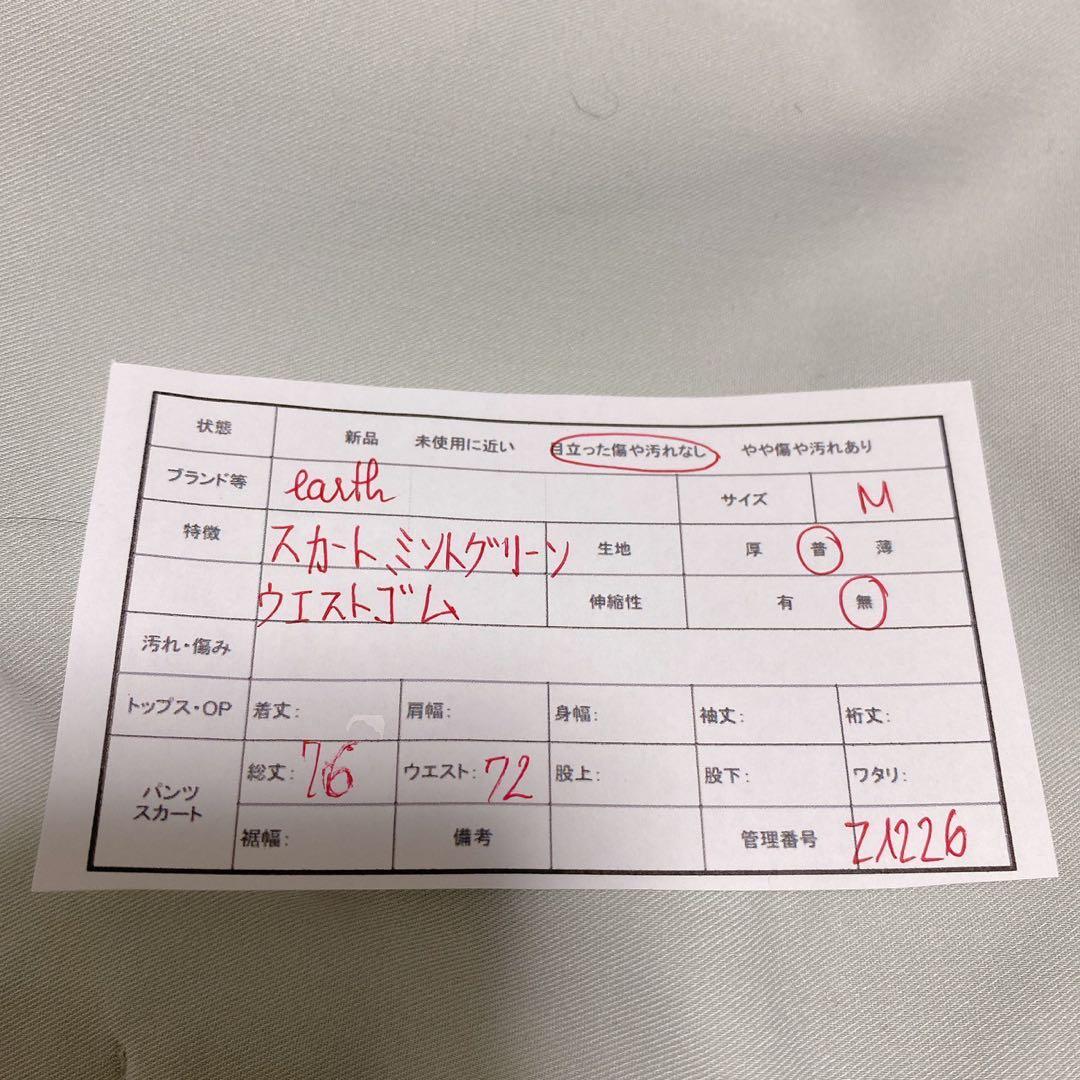 状態 新品 未使用に近い 目立った傷や汚れなし やや傷や汚れあり
ブランド等 earth サイズ M
特徴 スカート、ミントグリーン 生地 厚 普 薄
ウエストゴム 伸縮性 有 無
汚れ・傷み
トップス・OP 着丈: 肩幅: 身幅: 袖丈: 裄丈:
パンツ スカート 総丈: 76 ウエスト: 72 股上: 股下: ワタリ:
裾幅: 備考 管理番号 Z1226